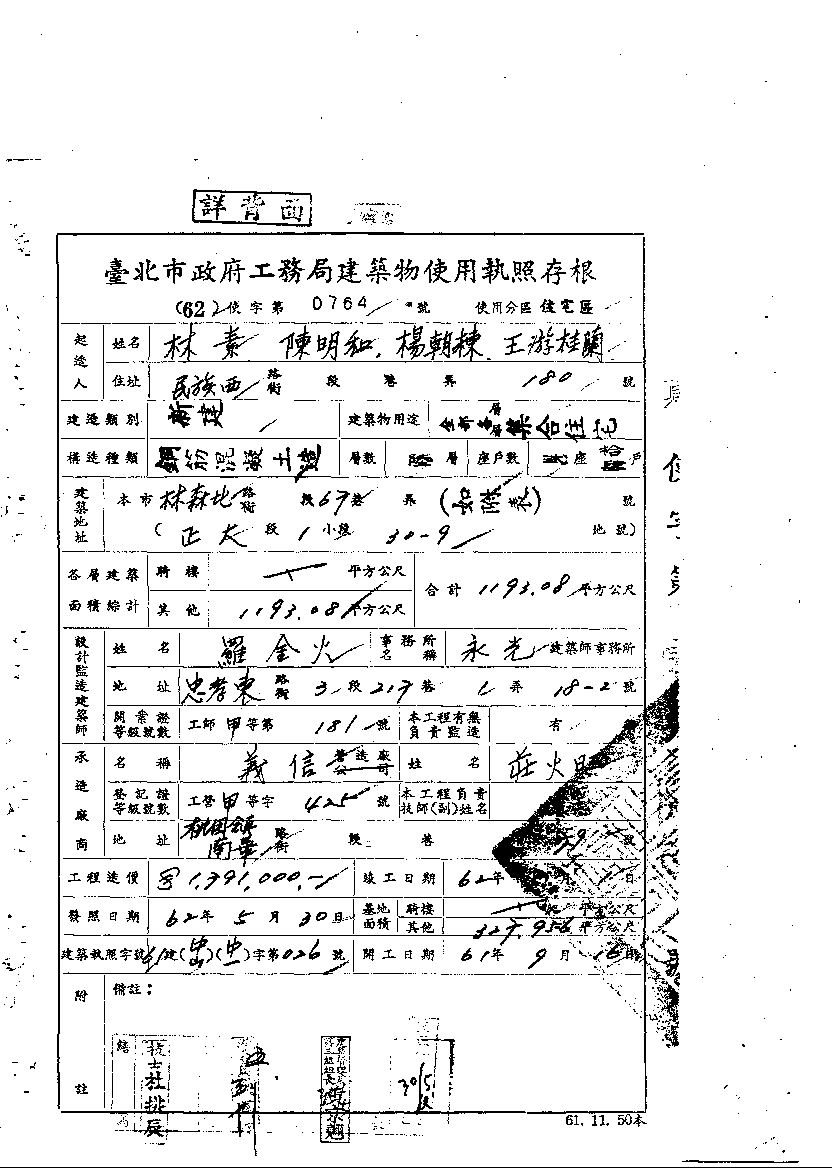 詳背面
臺北市政府工務局建築物使用執照存根
(62)使字第 0764 號 使用分區 住宅區
起造人 姓名 林素 陳明和、楊朝棟、王游桂蘭
住址 民族西 路街 段 巷 弄 180 號
建造類別 新建 建築物用途 全部各層集合住宅
構造種類 鋼筋混凝土造 層數 層 座戶數 座 戶
建築地址 本市 林森北 路街 段 67 巷 弄 (如附表) 號
(正大 段 1 小段 30-9 地號)
各層建築面積綜計 騎樓 平方公尺 合計 1193.08 平方公尺
其他 1193.08 平方公尺
設計監造建築師 姓名 羅金火 事務所名稱 永光 建築師事務所
地址 忠孝東 路街 3 段 217 巷 1 弄 18-2 號
開業證等級號數 工師 甲 等第 181 號 本工程有無負責監造 有
承造廠商 名稱 義信 營造廠公司 姓名 莊火
登記證等級號數 工營 甲 等字 425 號 本工程負責技師(副)姓名
地址 南華 路街 段 巷 號
工程造價 1,391,000,- 竣工日期 62年 日
發照日期 62年 5月 30日 基地面積 騎樓 平方公尺
其他 327.956 平方公尺
建築執照字號 61建(中山)(中一)字第026號 開工日期 61年 9月 16日
附註 備註:
技士杜排辰
30/5
61. 11. 50本